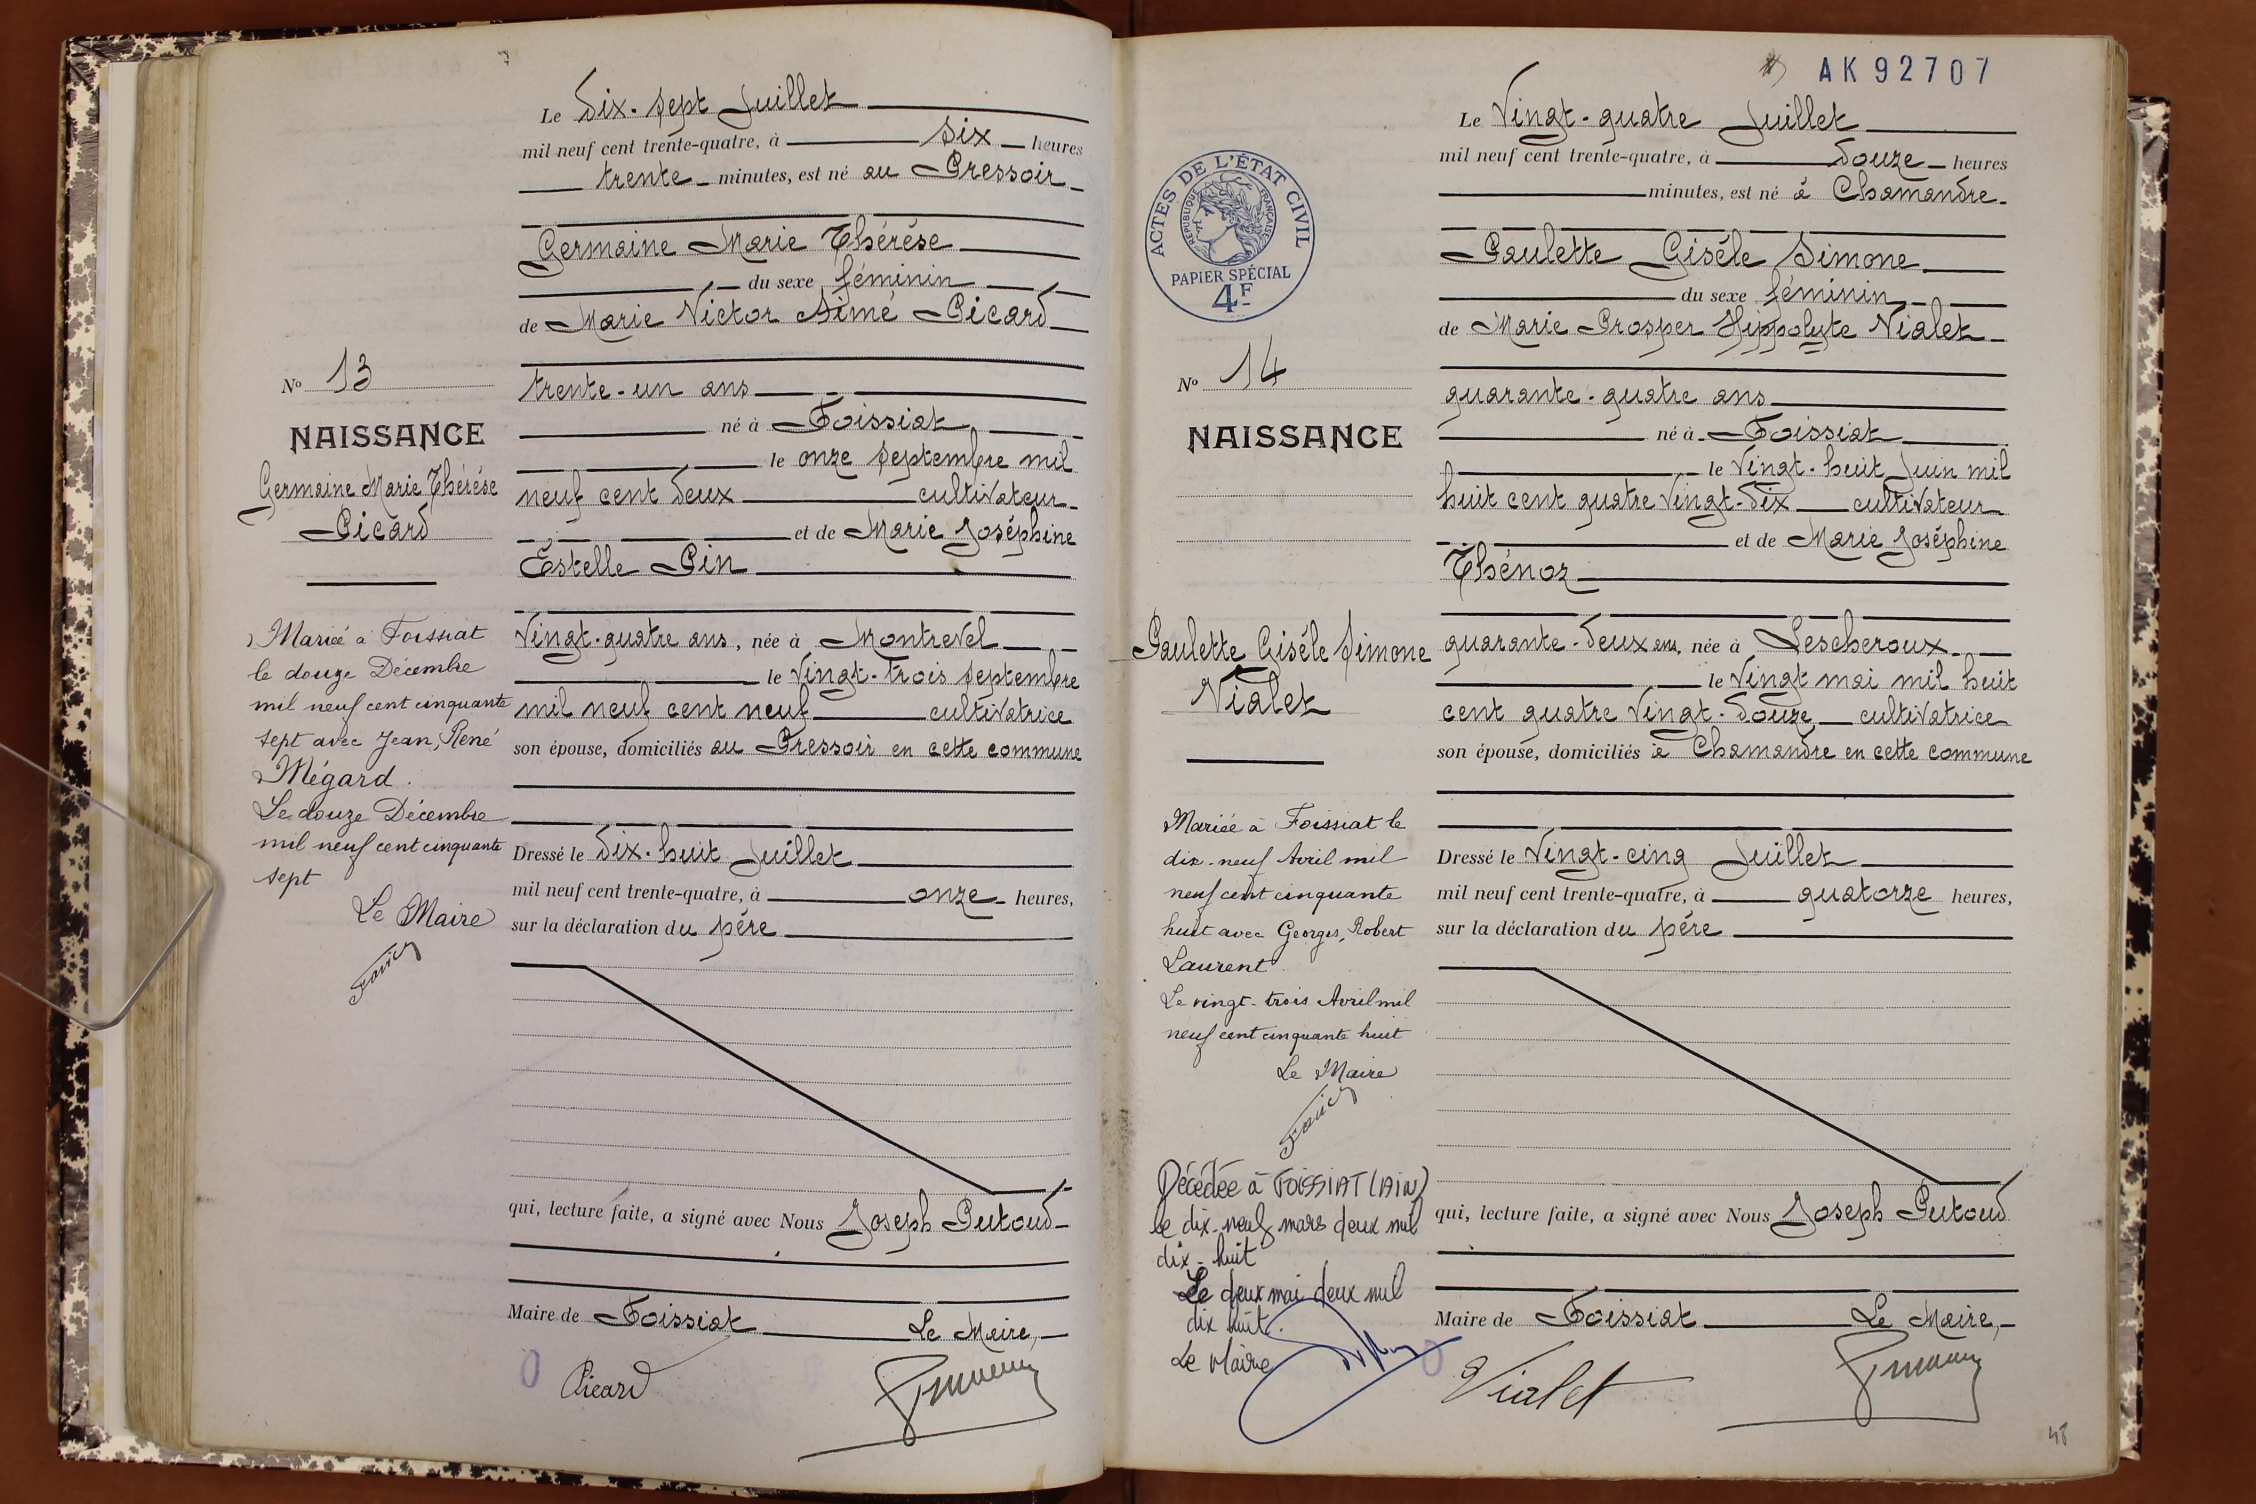 Le Dix-sept Juillet
mil neuf cent trente-quatre, à six heures
trente minutes, est né au Pressoir
Germaine Marie Thérèse
du sexe féminin
de Marie Victor Aimé Picard
trente-un ans
né à Foissiat
le onze septembre mil
neuf cent deux cultivateur
et de Marie Joséphine
Estelle Pin
Vingt-quatre ans, née à Montrevel
le Vingt-trois septembre
mil neuf cent neuf cultivatrice
son épouse, domiciliés au Pressoir en cette commune
Dressé le Dix-huit Juillet
mil neuf cent trente-quatre, à onze heures,
sur la déclaration du père
qui, lecture faite, a signé avec Nous Joseph Putoud
Maire de Foissiat Le Maire,
Picard
No 13
NAISSANCE
Germaine Marie Thérèse
Picard
Mariée à Foissiat
le douze Décembre
mil neuf cent cinquante
sept avec Jean, René
Mégard.
Le douze Décembre
mil neuf cent cinquante
sept
Le Maire
AK92707
Le Vingt-quatre Juillet
mil neuf cent trente-quatre, à Douze heures
minutes, est né à Chamandre
Paulette Gisèle Simone
du sexe féminin
de Marie Prosper Hippolyte Vialet
quarante-quatre ans
né à Foissiat
le Vingt-huit Juin mil
huit cent quatre Vingt-Dix cultivateur
et de Marie Joséphine
Thénoz
quarante-Deux ans, née à Lescheroux
le Vingt mai mil huit
cent quatre Vingt-Douze cultivatrice
son épouse, domiciliés à Chamandre en cette commune
Dressé le Vingt-cinq Juillet
mil neuf cent trente-quatre, à quatorze heures,
sur la déclaration du père
qui, lecture faite, a signé avec Nous Joseph Putoud
Maire de Foissiat Le Maire,
Vialet
ACTES DE L'ÉTAT CIVIL
RÉPUBLIQUE FRANÇAISE
PAPIER SPÉCIAL
4F
No 14
NAISSANCE
Paulette Gisèle Simone
Vialet
Mariée à Foissiat le
dix-neuf Avril mil
neuf cent cinquante
huit avec Georges, Robert
Laurent
Le vingt-trois Avril mil
neuf cent cinquante huit
Le Maire
Décédée à FOISSIAT (AIN)
le dix-neuf mars deux mil
dix-huit
Le deux mai deux mil
dix huit.
Le Maire
48